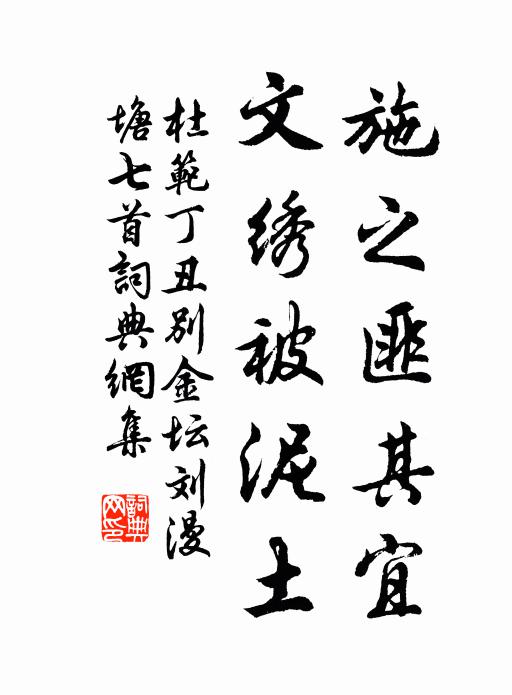 施之匪其宜
文绣被泥土
杜範丁丑别金坛刘漫
塘七首詞典網集
詞典网印